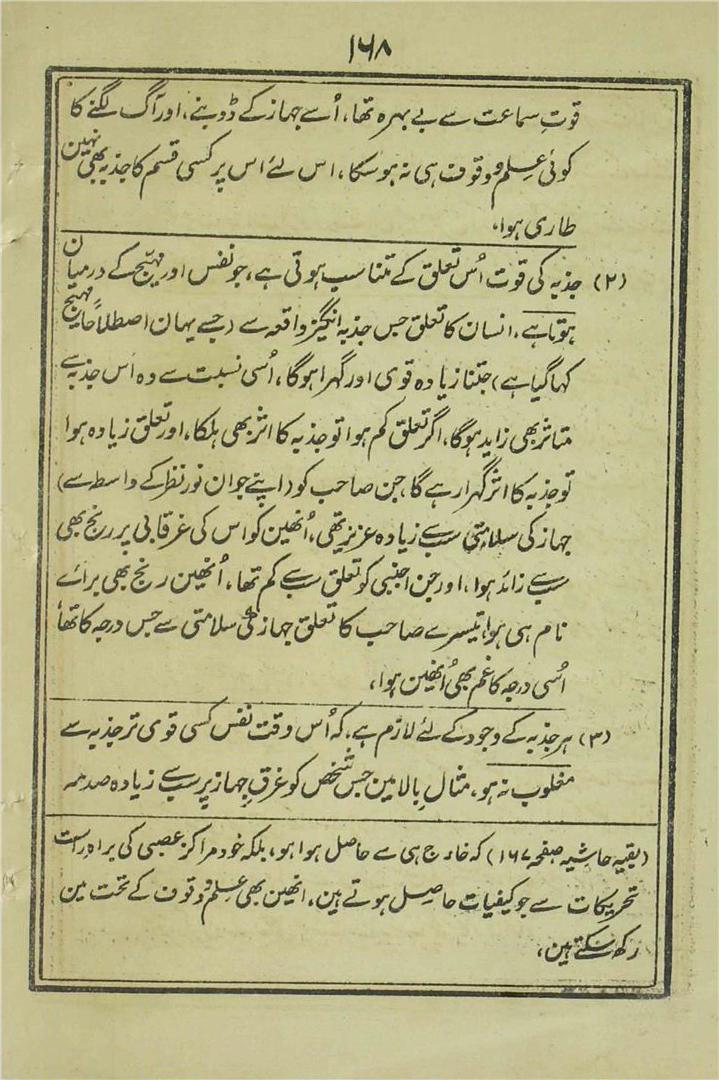 ۱۶۸
قوتِ سماعت سے بے بہرہ تھا، اُسے جہاز کے ڈوبنے، اور آگ لگنے کا
کوئی علم و وقوف ہی نہ ہوسکا، اس لئے اس پر کسی قسم کا جذبہ بھی نہین
طاری ہوا،
(۲) جذبہ کی قوت اُس تعلق کے متناسب ہوتی ہے، جو نفس اور مہیّج کے درمیان
ہوتا ہے، انسان کا تعلق جس جذبہ انگیز واقعہ سے (جسے یہان اصطلاحًا مہیج
کہا گیا ہے) جتنا زیادہ قوی اور گہرا ہوگا، اُسی نسبت سے وہ اس جذبہ سے
متاثر بھی زاید ہوگا، اگر تعلق کم ہوا تو جذبہ کا اثر بھی ہلکا، اور تعلق زیادہ ہوا
تو جذبہ کا اثر گہرا رہے گا، جن صاحب کو (اپنے جوان نورنظر کے واسطہ سے)
جہاز کی سلامتی سب سے زیادہ عزیز تھی، اُنھین کو اس کی غرقابی پر رنج بھی
سب سے زائد ہوا، اور جن اجنبی کو تعلق سب سے کم تھا، اُنھین رنج بھی برائے
نام ہی ہوا، تیسرے صاحب کا تعلق جہاز کی سلامتی سے جس درجہ کا تھا
اُسی درجہ کا غم بھی اُنھین ہوا،
(۳) ہر جذبہ کے وجود کے لئے لازم ہے، کہ اُس وقت نفس کسی قوی تر جذبہ سے
مغلوب نہ ہو، مثالِ بالا مین جس شخص کو غرقِ جہاز پر سب سے زیادہ صدمہ
(بقیہ حاشیہ صفحہ ۱۶۷) کہ خارج ہی سے حاصل ہوا ہو، بلکہ خود مراکز عصبی کی براہِ راست
تحریکات سے جو کیفیات حاصل ہوتے ہین، انھین بھی علم و وقوف کے تحت مین
رکھ سکتے ہین،